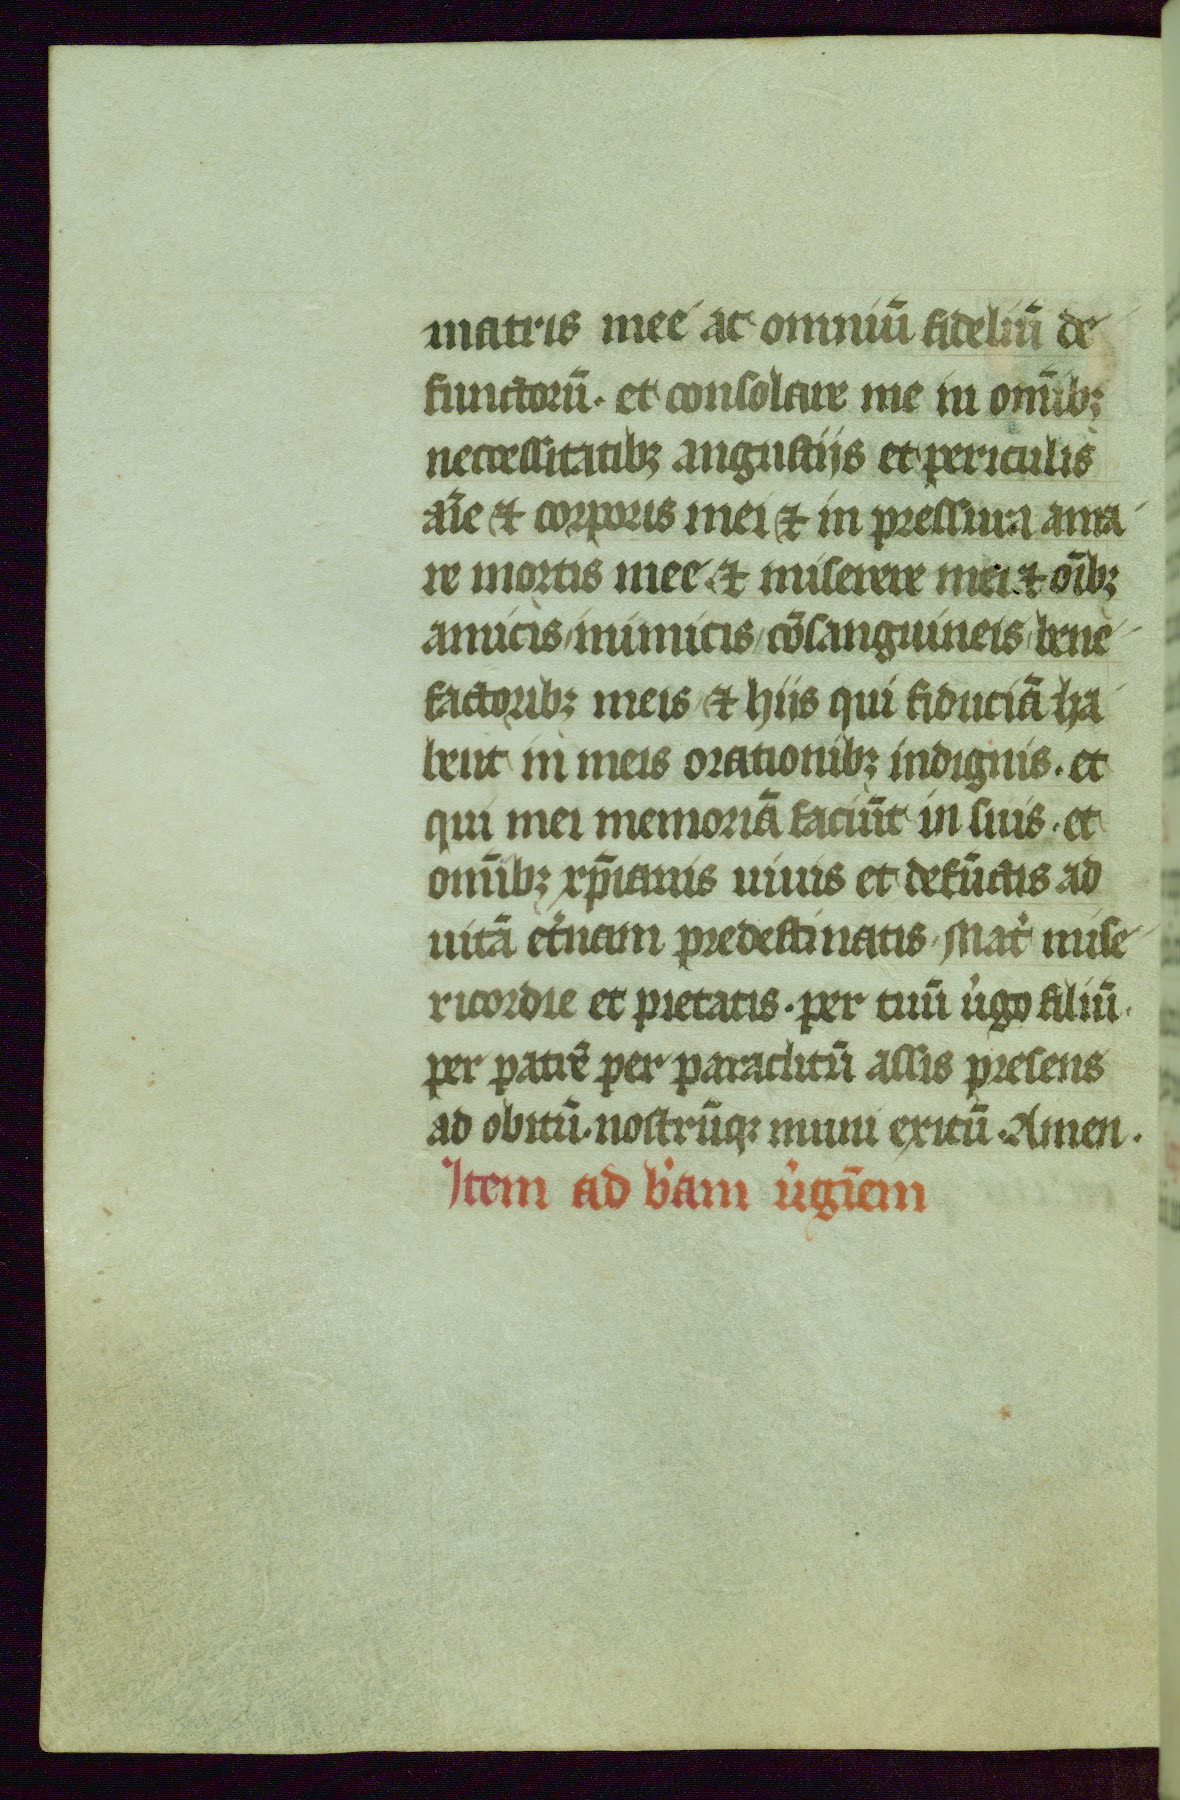 matris mee ac omniū fideliū de
functorū. et consolare me in omībꝫ
necessitatibꝫ angustijs et periculis
aīe ⁊ corporis mei ⁊ in pressura ama
re mortis mee. ⁊ miserere mei ⁊ oībꝫ
amicis / inimicis / cōsanguineis / bene
factoribꝫ meis / ⁊ hijs qui fiduciā ha
bent in meis orationibꝫ indignis. et
qui mei memoriā faciūt in suis. et
omībꝫ xp̄ianis uiuis et defūctis ad
uitā et̓nam predestinatis. Mat̓ mise
ricordie et pietatis. per tuū u̓go filiū.
per patrē per paraclitū assis presens
ad obitū. nostrūqꝫ muni exitū. Amen.
Item ad b̓am u̓gīem